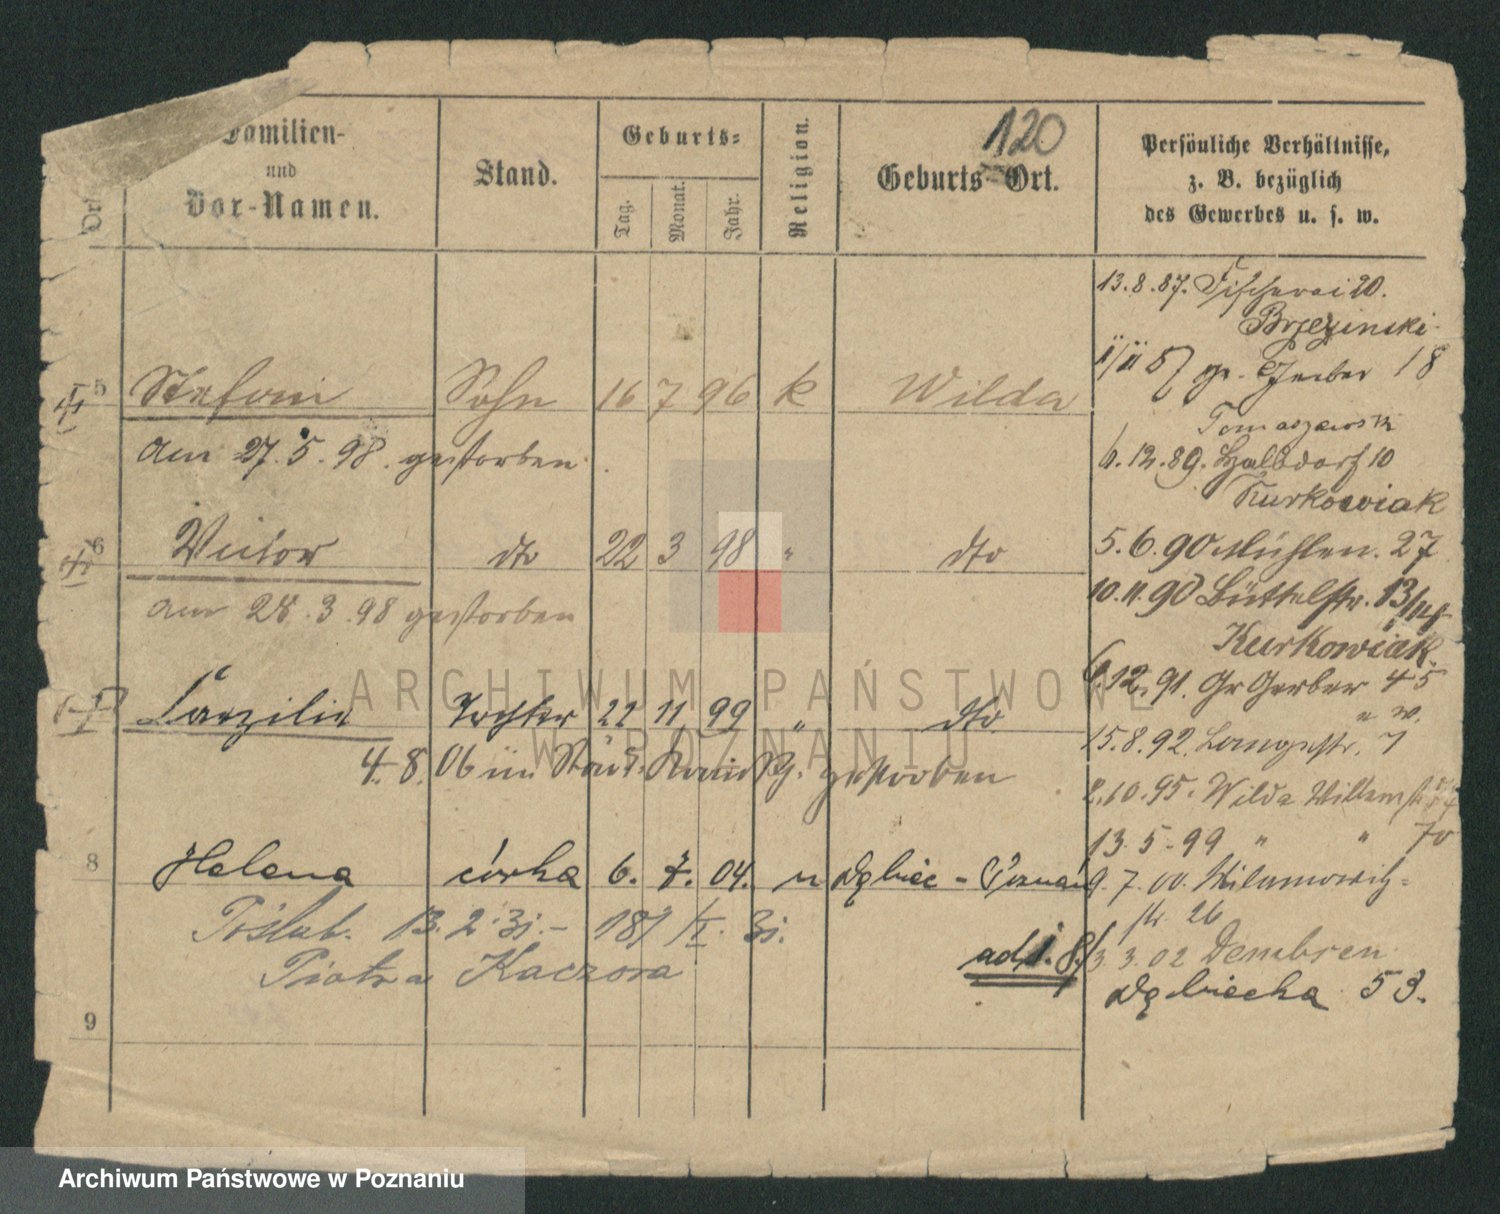 120
Familien-
und
Vor-Namen.
Stand.
Geburts-
Tag. Monat. Jahr.
Religion.
Geburts-Ort.
Persönliche Verhältnisse,
z. B. bezüglich
des Gewerbes u. s. w.
5 Stefani Sohn 16 7 96 k Wilda
am 27.5.98. gestorben
6 Victor dto 22 3 98 " dto
am 28.3.98 gestorben
Caezilie Tochter 22 11 99 " dto
4.8.06 im Städt. Krankh. gestorben
8 Helena córka 6. 7. 04. " Dębiec - Poznań
Poślub. 13.2.31. - 187/I. 31.
Piotra Kaczora
9
ad 1.
13.8.87. Fischerei 20.
Brzezinski
gr. Gerber 18
Tomaszewski
6.12.89. Halbdorf 10
Kurkowiak
5.6.90 Mühlen. 27
10.11.90 Büttelstr. 13/14
Kurkowiak.
6.12.91. Gr Gerber 45
15.8.92. Langestr. 7
2.10.95. Wilda
13.5.99 " " 70
9.7.00. Wilamowitz-
str. 26
3.3.02 Dembsen
Dębiecka 53.
ARCHIWUM PAŃSTWOWE
W POZNANIU
Archiwum Państwowe w Poznaniu